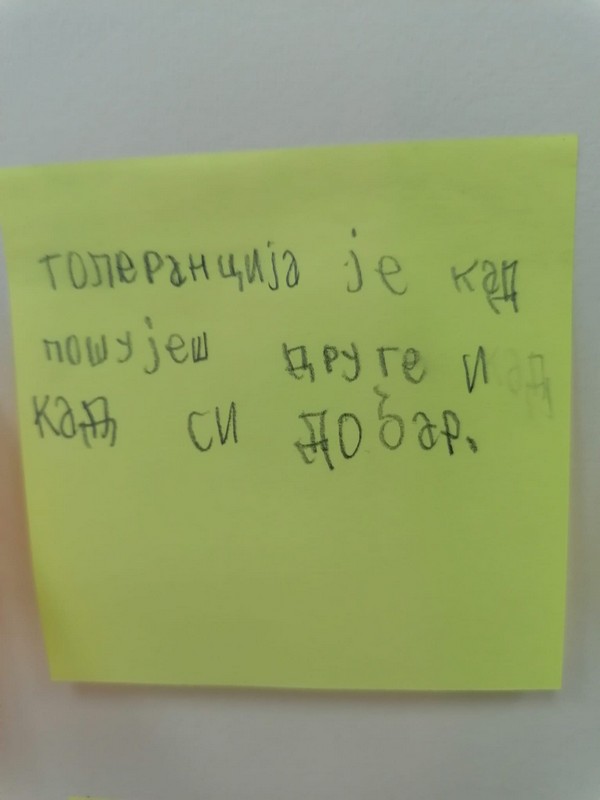 толеранција је кад
пошујеш друге и
кад си добар.